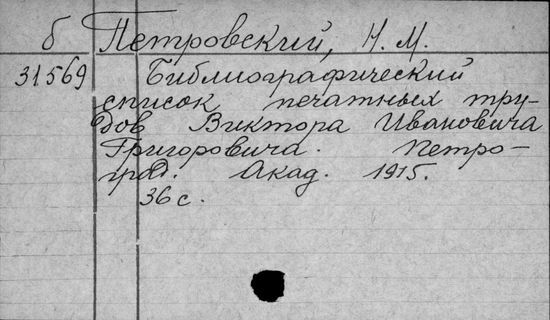 б Петровский, Н. М.
31569 Библиографический
список печатных тру-
дов Виктора Ивановича
Григоровича. Петро-
град. Акад. 1915.
36 с.